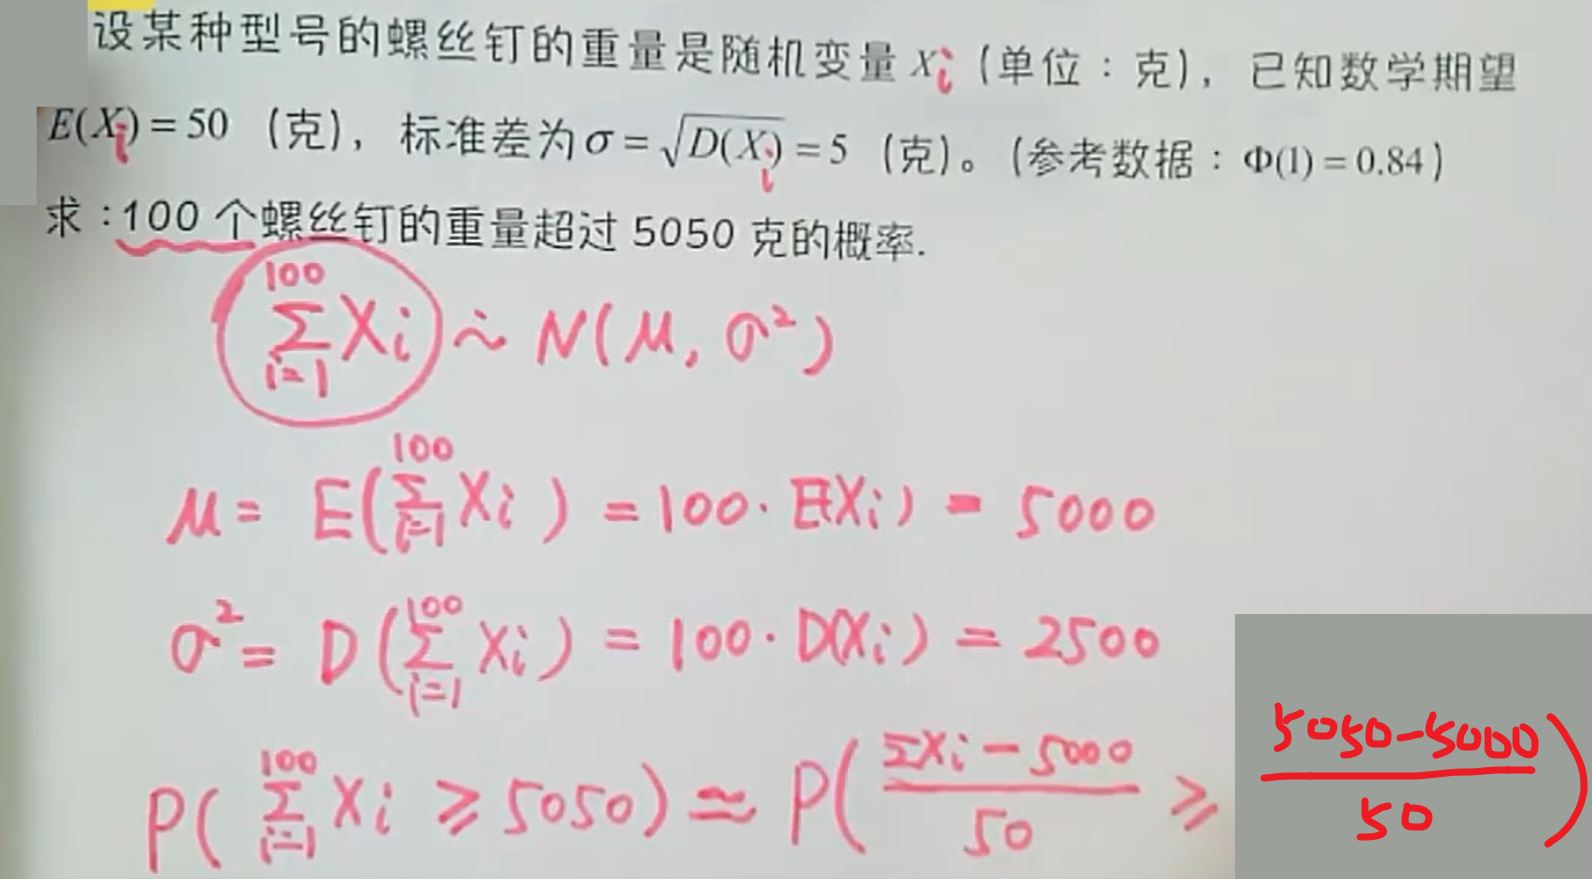 设某种型号的螺丝钉的重量是随机变量 Xi（单位：克），已知数学期望
E(Xi) = 50 （克），标准差为 σ = √D(Xi) = 5 （克）。（参考数据：Φ(1) = 0.84）
求：100 个螺丝钉的重量超过 5050 克的概率.
∑_{i=1}^{100} Xi ~ N(μ, σ²)
μ = E(∑_{i=1}^{100} Xi) = 100·E(Xi) = 5000
σ² = D(∑_{i=1}^{100} Xi) = 100·D(Xi) = 2500
P(∑_{i=1}^{100} Xi ≥ 5050) ≃ P((ΣXi − 5000)/50 ≥ (5050−5000)/50)